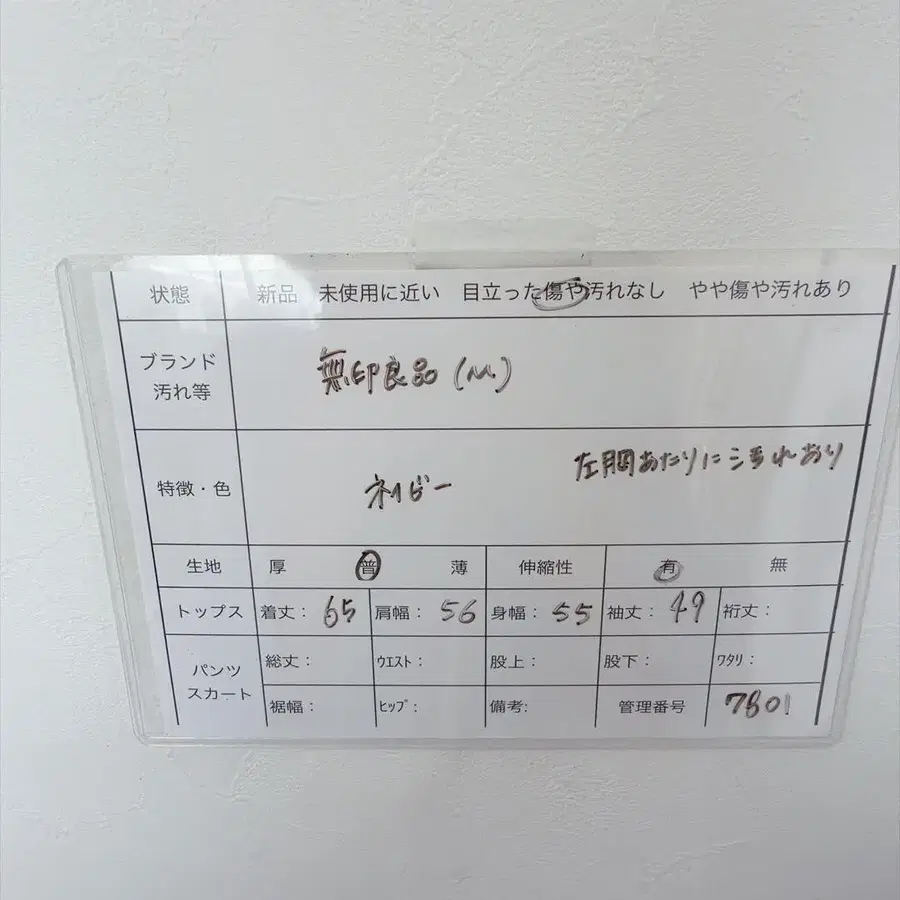 状態 新品 未使用に近い 目立った傷や汚れなし やや傷や汚れあり
ブランド
汚れ等
無印良品(M)
特徴・色 ネイビー 左胸あたりに汚れあり
生地 厚 普 薄 伸縮性 有 無
トップス 着丈: 65 肩幅: 56 身幅: 55 袖丈: 49 裄丈:
パンツ
スカート
総丈: ウエスト: 股上: 股下: ワタリ:
裾幅: ヒップ: 備考: 管理番号 7801